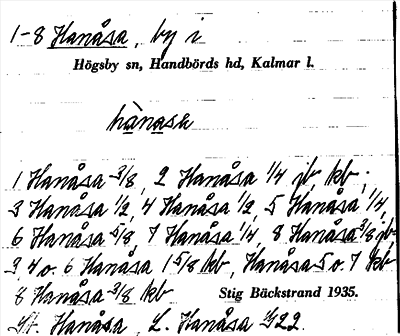 1-8 Hanåsa, by i
Högsby sn, Handbörds hd, Kalmar l.
hànasa
1 Hanåsa 3/8, 2 Hanåsa 1/4 jb, kb;
3 Hanåsa 1/2, 4 Hanåsa 1/2, 5 Hanåsa 1/4,
6 Hanåsa 5/8, 7 Hanåsa 1/4, 8 Hanåsa 3/8 jb
3, 4 o. 6 Hanåsa 1 5/8 kb, Hanåsa 5 o. 7 kb
8 Hanåsa 3/8 kb Stig Bäckstrand 1935.
St. Hanåsa, L. Hanåsa